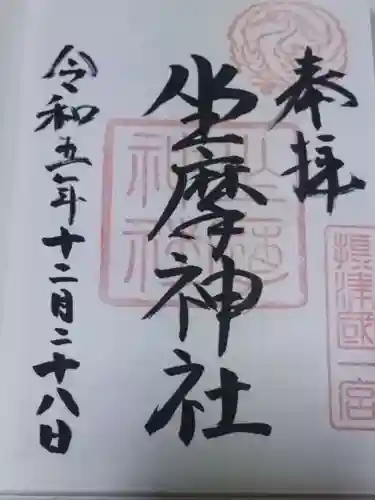 奉拝
摂津國一宮
坐摩神社
坐摩神社
令和五年十二月二十八日